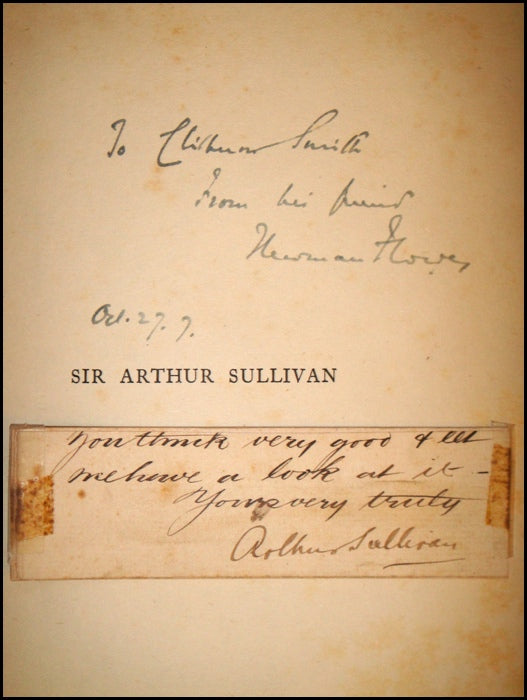 To Smith
From his friend
Newman Flower
Oct. 27. 7.
SIR ARTHUR SULLIVAN
you think very good & let
me have a look at it –
Yours very truly
Arthur Sullivan